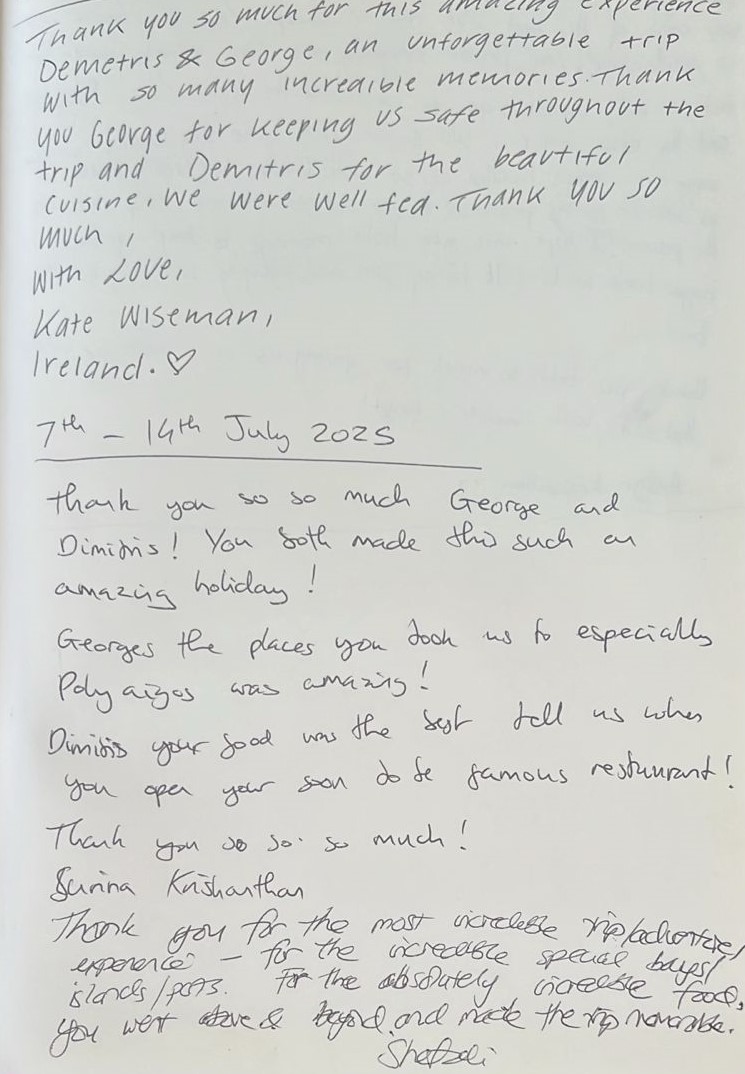 Thank you so much for this amazing experience
Demetris & George, an unforgettable trip
with so many incredible memories. Thank
you George for keeping us safe throughout the
trip and Demitris for the beautiful
cuisine, we were well fed. Thank you so
much,
With Love,
Kate Wiseman,
Ireland. ♡
7th - 14th July 2025
Thank you so so much George and
Dimitris! You both made this such an
amazing holiday!
Georges the places you took us to especially
Polyaigos was amazing!
Dimitris your food was the best tell us when
you open your soon to be famous restuurant!
Thank you so so so much!
Krishanthan
Thank you for the most incredible trip/adventure/
experience - for the incredible special bays/
islands/ For the absolutely incredible food,
you went above & beyond and made the trip memorable.